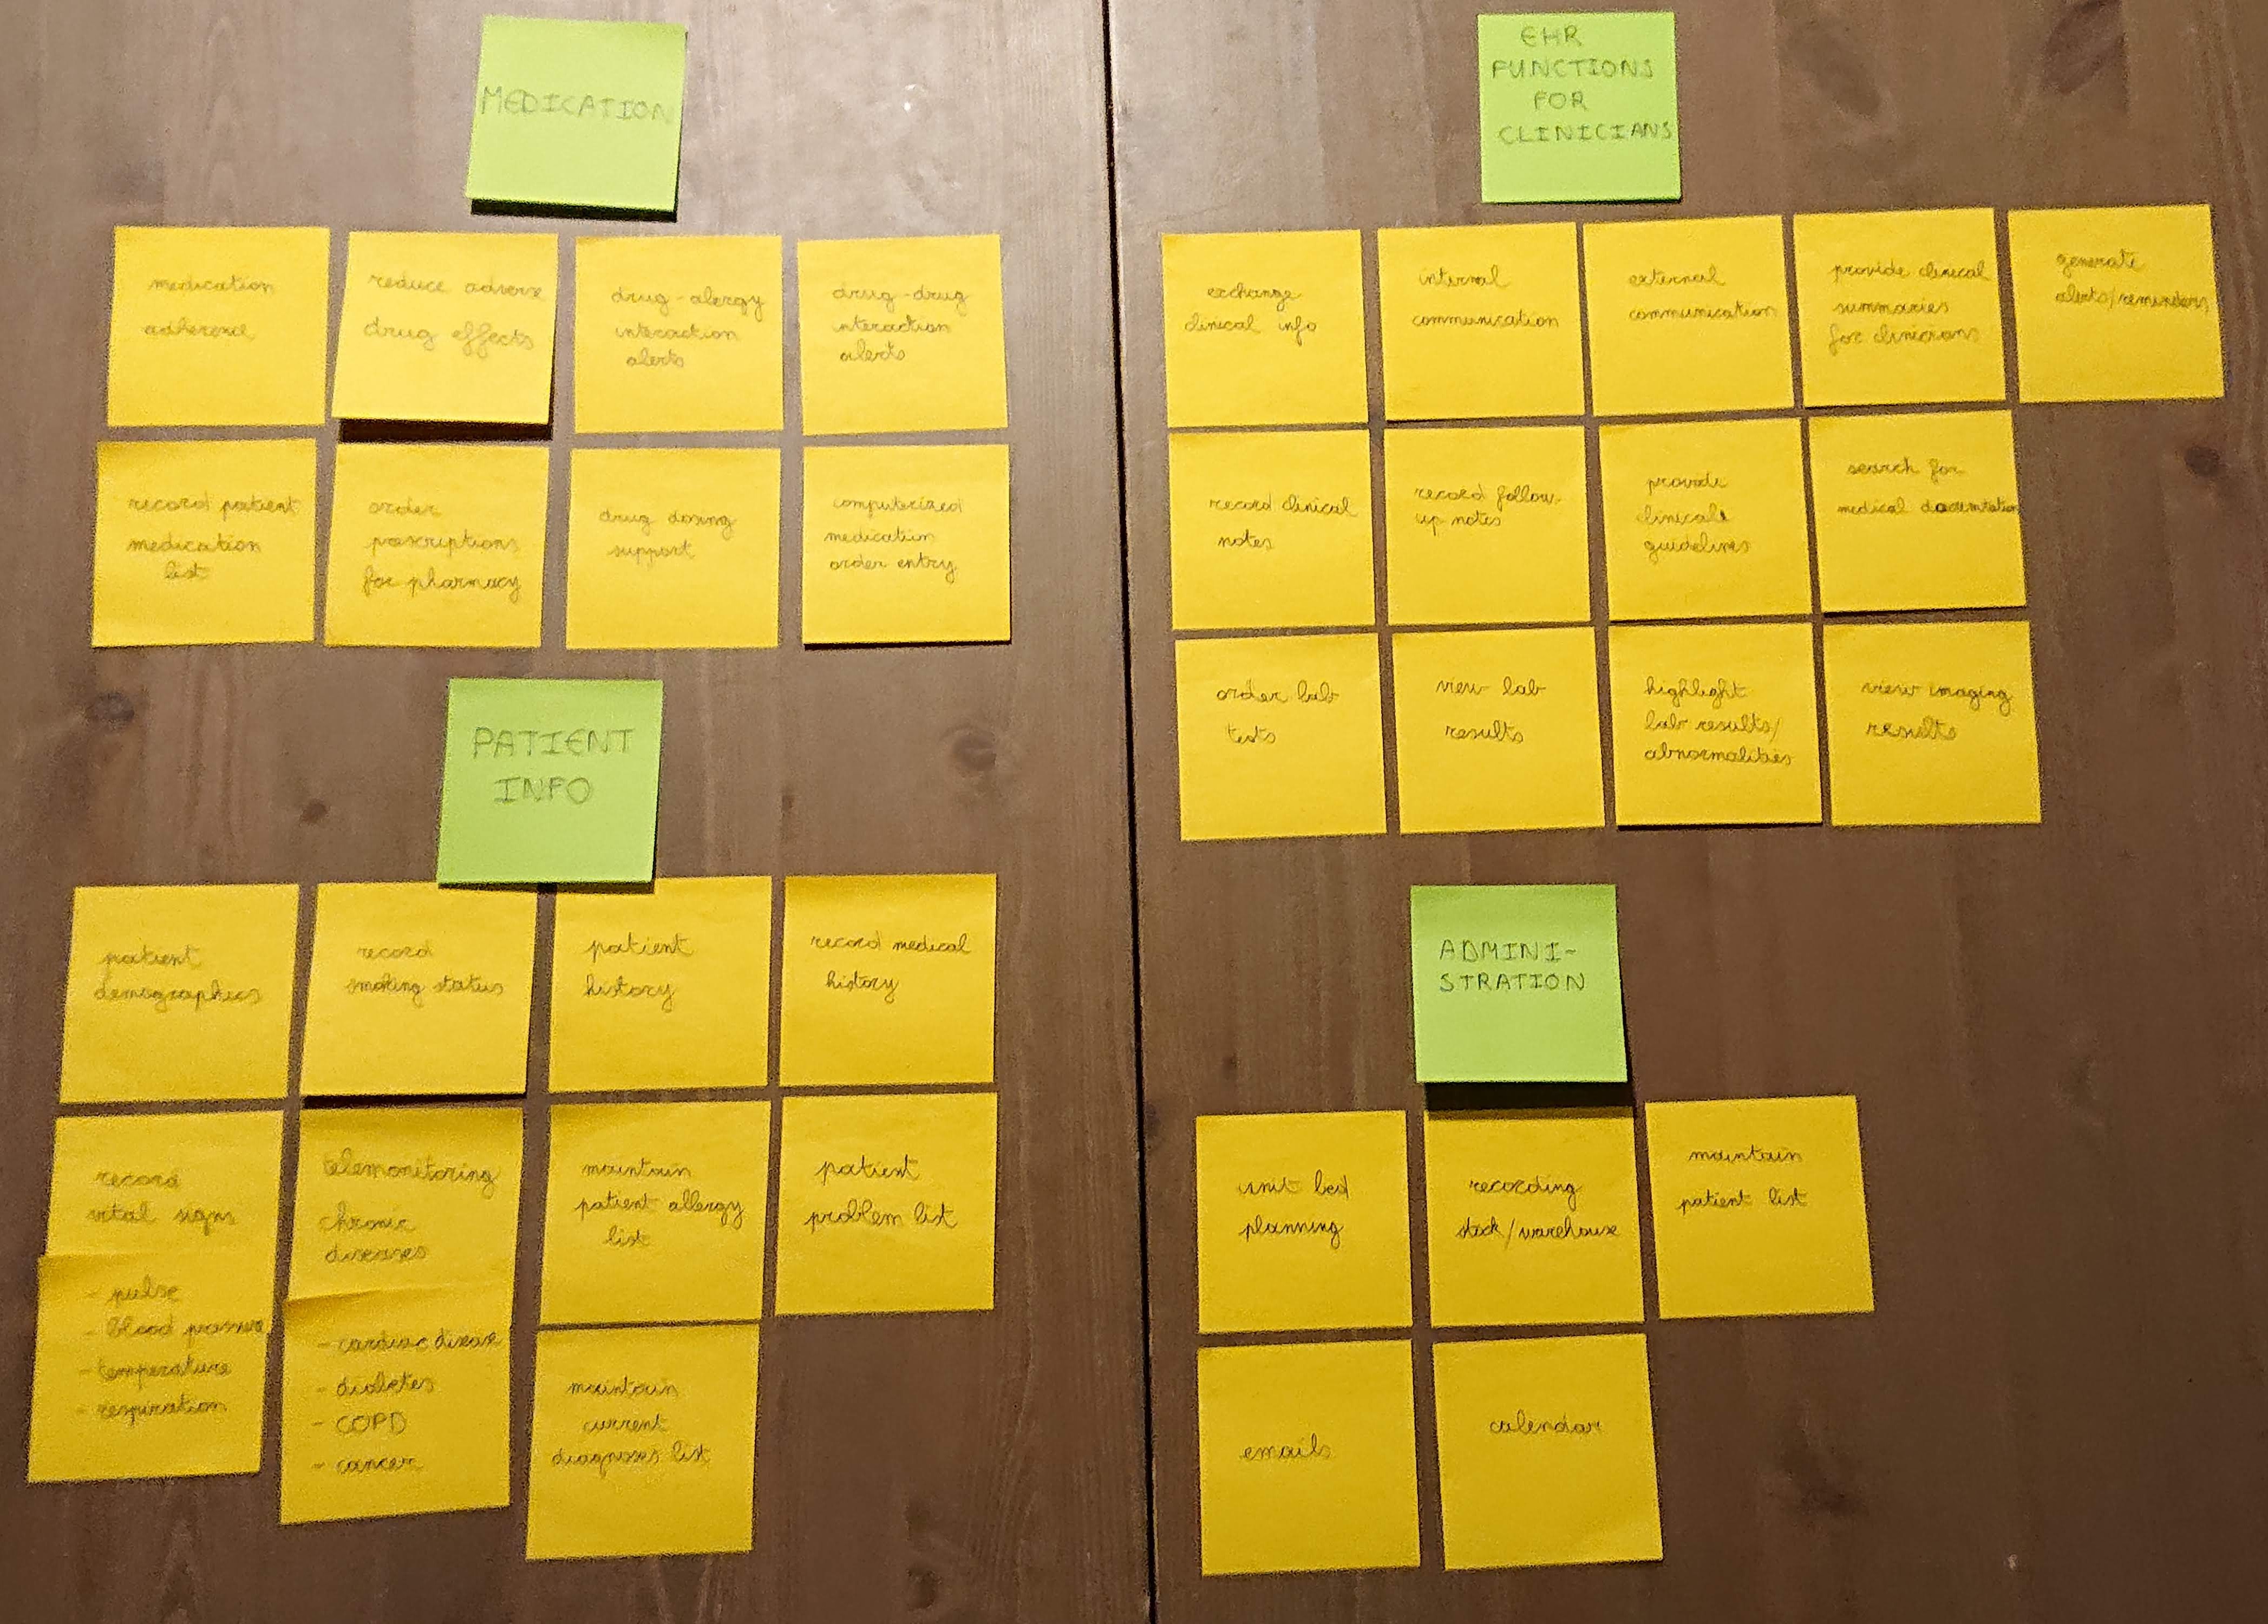 MEDICATION
medication
adherence
reduce adverse
drug effects
drug-alergy
interaction
alerts
drug-drug
interaction
alerts
record patient
medication
list
order
prescriptions
for pharmacy
drug dosing
support
computerized
medication
order entry
PATIENT
INFO
patient
demographics
record
smoking status
patient
history
record medical
history
record
vital signs
- pulse
- blood pressure
- temperature
- respiration
telemonitoring
chronic
diseases
- cardiac disease
- diabetes
- COPD
- cancer
maintain
patient allergy
list
patient
problem list
maintain
current
diagnoses list
EHR
FUNCTIONS
FOR
CLINICIANS
exchange
clinical info
internal
communication
external
communication
provide clinical
summaries
for clinicians
generate
alerts/reminders
record clinical
notes
record follow-
up notes
provide
clinicals
guidelines
search for
medical documentation
order lab
tests
view lab
results
highlight
lab results/
abnormalities
view imaging
results
ADMINI-
STRATION
unit bed
planning
recording
stock/warehouse
maintain
patient list
emails
calendar